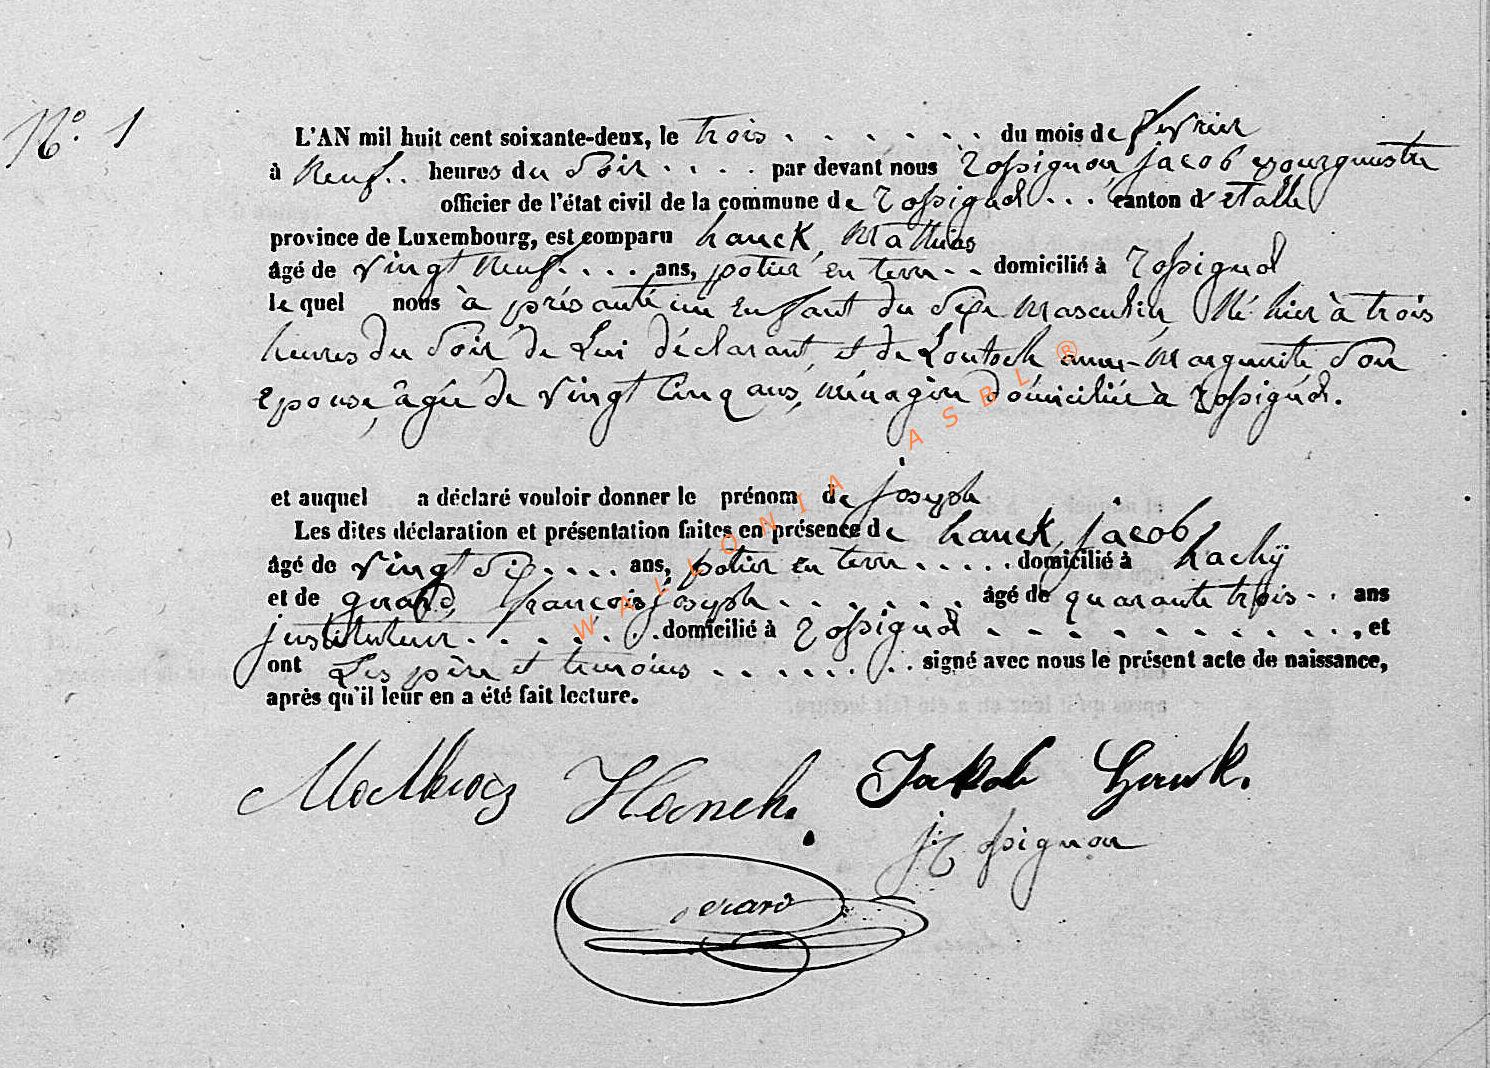 N° 1
L'AN mil huit cent soixante-deux, le trois . . . . . . du mois de fevrier
à neuf . . heures du Soir . . . . par devant nous Rossignon, jacob Bourgmestre
officier de l'état civil de la commune de Rossignol . . . canton d'etalle
province de Luxembourg, est comparu hanck, Mathias
âgé de vingt neuf . . . . ans, potier en terre . . domicilié à Rossignol
le quel nous à présanté un enfant du Sexe masculin Né hier à trois
heures du Soir de Lui déclarant et de Loutsch anne-Marguerite Son
Epouse, âgée de vingt Cinq ans, ménagère domiciliée à Rossignol.
et auquel a déclaré vouloir donner le prénom de joseph
Les dites déclaration et présentation faites en présence de hanck, jacob
âgé de vingt Six . . . . ans, potier en terre . . . . . domicilié à hachÿ
et de gerard, françois joseph . . . . . . . âgé de quarante trois . . ans
justituteur . . . . . . . domicilié à Rossignol . . . . . . . . . . . . , et
ont Les père et temoins . . . . . . . signé avec nous le présent acte de naissance,
après qu'il leur en a été fait lecture.
Mathias Hanck. Jakob Hank.
j. Rossignon
gerard
WALLONIA ASBL ®